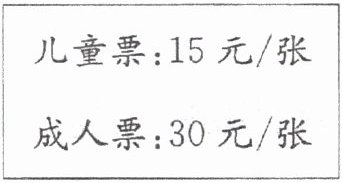 儿童票:15元/张
成人票:30元/张